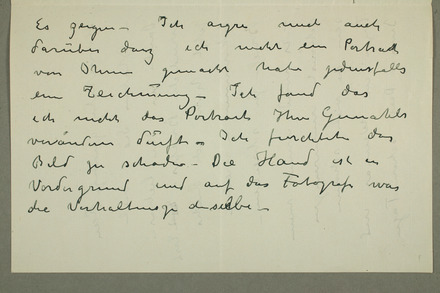 Es zeigen – Ich argre mich auch
darüber danz ich nicht ein Portrait
von Ihnen gemacht habe jedenfalls
eine Zeichnung – Ich fand das
ich nicht das Portrait Ihres Gemahls
verändern dürfte – Ich fürchtete das
Bild zu schaden – Die Hand ist im
Vordergrund und auf das Fotografe was
die Verhaltnisse dieselbe –